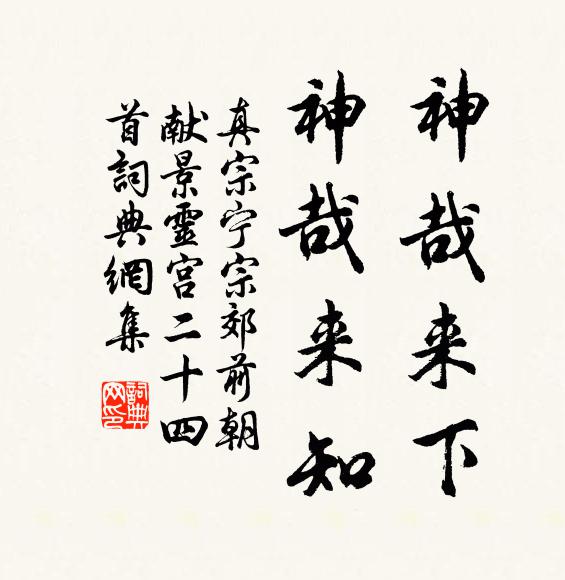 神哉来下
神哉来知
真宗宁宗郊前朝
献景靈宫二十四
首詞典網集
詞典
网印